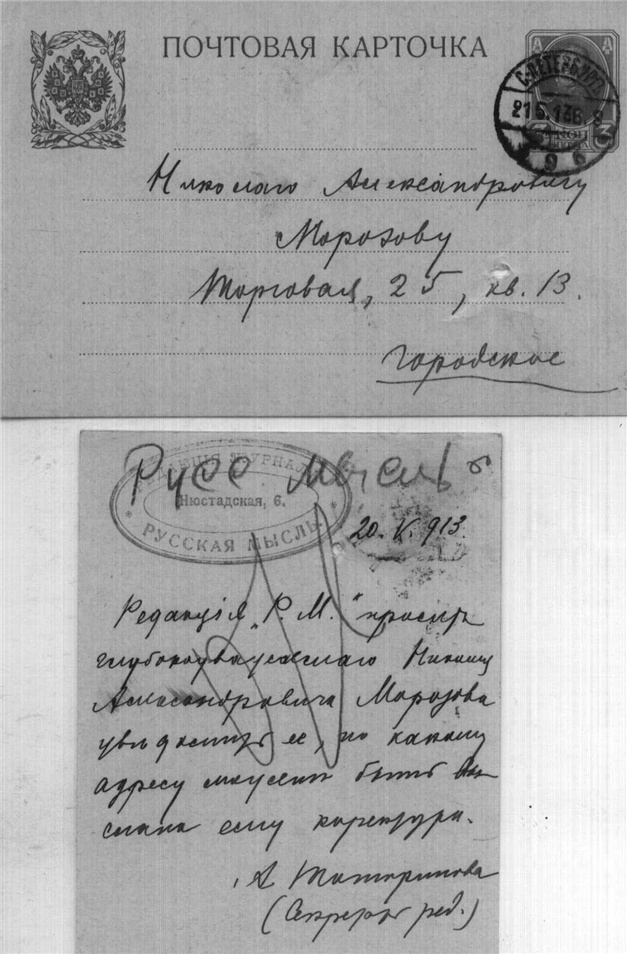 ПОЧТОВАЯ КАРТОЧКА
С.ПЕТЕРБУРГЪ
21 5. 13
Николаю Александровичу
Морозову
Торговая, 25, кв. 13.
городское
Русс Мысль
ЖУРНАЛА
Нюстадская, 6.
РУССКАЯ МЫСЛЬ
20. V. 913
Редакція „Р. М." проситъ
глубокоуважаемаго
Александровича Морозова
увѣдомить ее, по какому
адресу можетъ быть вы-
слана ему корректура.
А Татаринова
(Секретарь ред.)